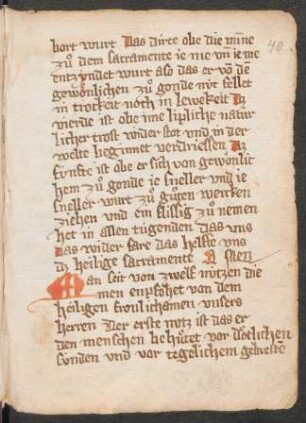 hort wurt Das dirte obe die mīne
zů dem sacramente ie me vn̄ ie me
entzyndet wurt also das er vō dē
gewonlichen zů gonde nv̊t fellet
in trockeit noch in lewekeit Dz
vierde ist obe ime lipliche natúr
licher trost wider stot und in der
welte beginnet verdriessen Dz
fv́nfte ist obe er sich von gewonlic
hem zů gonde ie sneller und ie
sneller wurt zů gůten wercken
ziehen und ein flissig zů nemen
het in allen tugenden das uns
das wider fare das helffe uns
dz heilige sacramente Amen
Man seit von zwelf nútzen die
men enpfohet von dem
heiligen fronlichamen unsers
herren Der erste notz ist das er
den menschen behůtet vor dotlichen
sv́nden und vor tegelichem gebreste
40